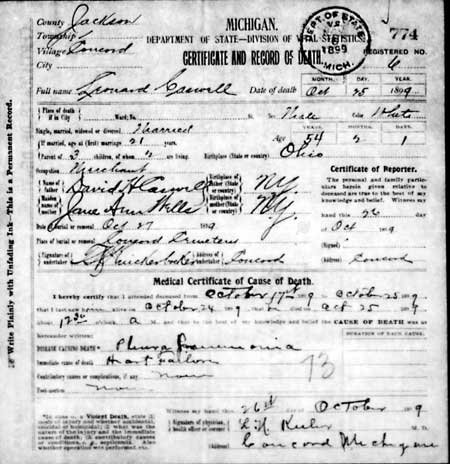 County Jackson
MICHIGAN.
DEPT. OF STATE
1899
MICH.
774
Township
Village Concord
DEPARTMENT OF STATE—DIVISION OF VITAL STATISTICS.
City
CERTIFICATE AND RECORD OF DEATH.
REGISTERED NO. 6
MONTH. DAY. YEAR.
Full name Leonard Caswell Date of death Oct 25 1899
Place of death if in City Ward; St. Sex Male Color White
Single, married, widowed or divorced Married
YEARS. MONTHS. DAYS.
If married, age at (first) marriage 21 years. Age 54 2 1
Parent of 3 children, of whom 2 are living. Birthplace (State or country) Ohio
Occupation Merchant
Certificate of Reporter.
Name of father David H Caswell Birthplace of father (State or country) N.Y.
The personal and family particulars herein given relative to deceased are true to the best of my knowledge and belief. Witness my
Maiden name of mother Jane Ann Wells Birthplace of Mother (State or country) N.Y.
hand this 26
Date of burial or removal Oct 27 1899
of Oct 1899
Place of burial or removal Concord Cemetery
(Signed)
Signature of undertaker Knickerbocker Address of undertaker Concord
Address Concord
Medical Certificate of Cause of Death.
I hereby certify that I attended deceased from October 17th 1899 to October 25 1899
that I last saw alive on October 24 1899 died on Oct 25 1899
about o'clock a. M. and that to the best of my knowledge and belief the CAUSE OF DEATH was as
hereunder written:
DURATION OF EACH CAUSE.
DISEASE CAUSING DEATH Pneumonia
Immediate cause of death Heart failure
93
Contributory causes or complications, if any
Witness my hand this 26th day of October 1899
Signature of physician, health officer or coroner M. D.
(Address) Concord Michigan
In case of a Violent Death, state (1) mode of injury and whether accidental, suicidal or homicidal; (2) what was the nature of the injury and the immediate cause of death; (3) contributory causes of conditions, e. g., septicemia. State whether operation was performed etc.
Write Plainly with Unfading Ink—This is a Permanent Record.